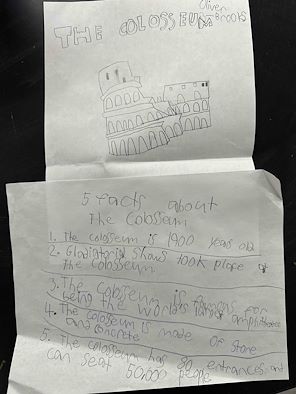 Oliver
Brooks
THE COLOSSEUM
5 facts about
The Colosseum
1. The colosseum is 1900 years old
2. Gladiatorial shows took place at
the colosseum
3. The Colosseum is famous for
being the worlds largest amphitheatre
4. The colosseum is made of stone
and concrete
5. The colosseum has 80 entrances and
can seat 50,000 people